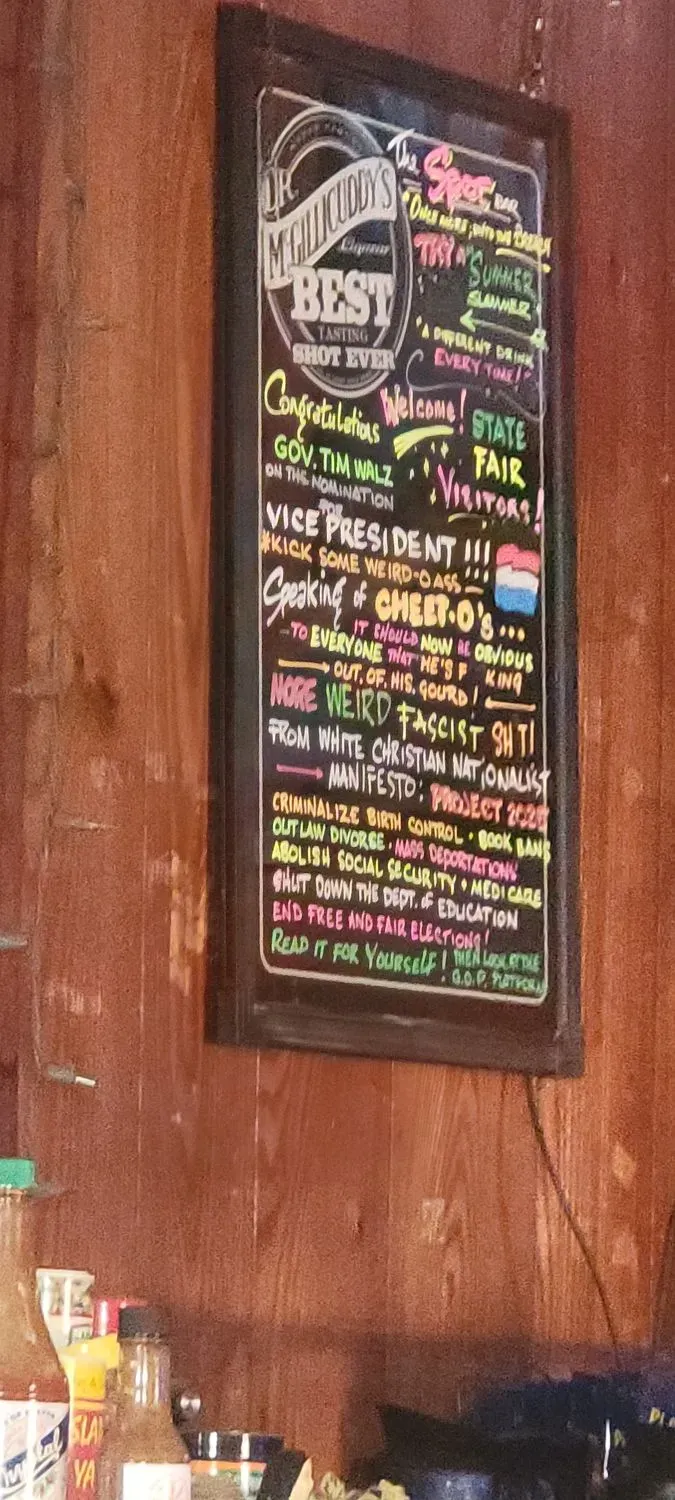 DR.
McGILLICUDDY'S
Liqueur
BEST
TASTING
SHOT EVER
The Spot BAR
"ONCE MORE, INTO THE BREACH
TRY A SUMMER
SLAMMER
"A DIFFERENT DRINK
EVERY TIME!"
Congratulations
GOV. TIM WALZ
ON THE NOMINATION
FOR
VICE PRESIDENT !!!
Welcome!
STATE
FAIR
VISITORS!
#KICK SOME WEIRD-O ASS
Speaking of CHEET-O's...
IT SHOULD NOW BE OBVIOUS
-TO EVERYONE THAT HE'S F KING
OUT. OF. HIS. GOURD!
MORE WEIRD FASCIST SH T!
FROM WHITE CHRISTIAN NATIONALIST
MANIFESTO: PROJECT 2025
CRIMINALIZE BIRTH CONTROL • BOOK BANS
OUTLAW DIVORSE • MASS DEPORTATIONS
ABOLISH SOCIAL SECURITY • MEDICARE
SHUT DOWN THE DEPT. of EDUCATION
END FREE AND FAIR ELECTIONS!
READ IT FOR YOURSELF! THEN LOOK AT THE
G.O.P. PLATFORM